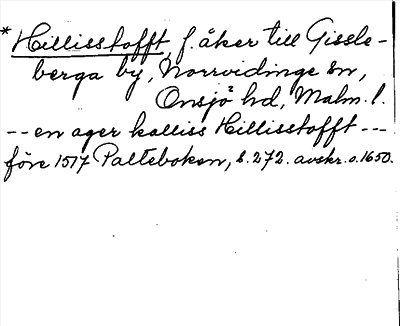 *Hillisstofft, f. åker till Gissle-
berga by, Norrvidinge sn,
Onsjö hd, Malm. l.
-- en ager kalliss Hillisstofft ---
före 1517 Palteboken, s. 272. avskr. o. 1650.